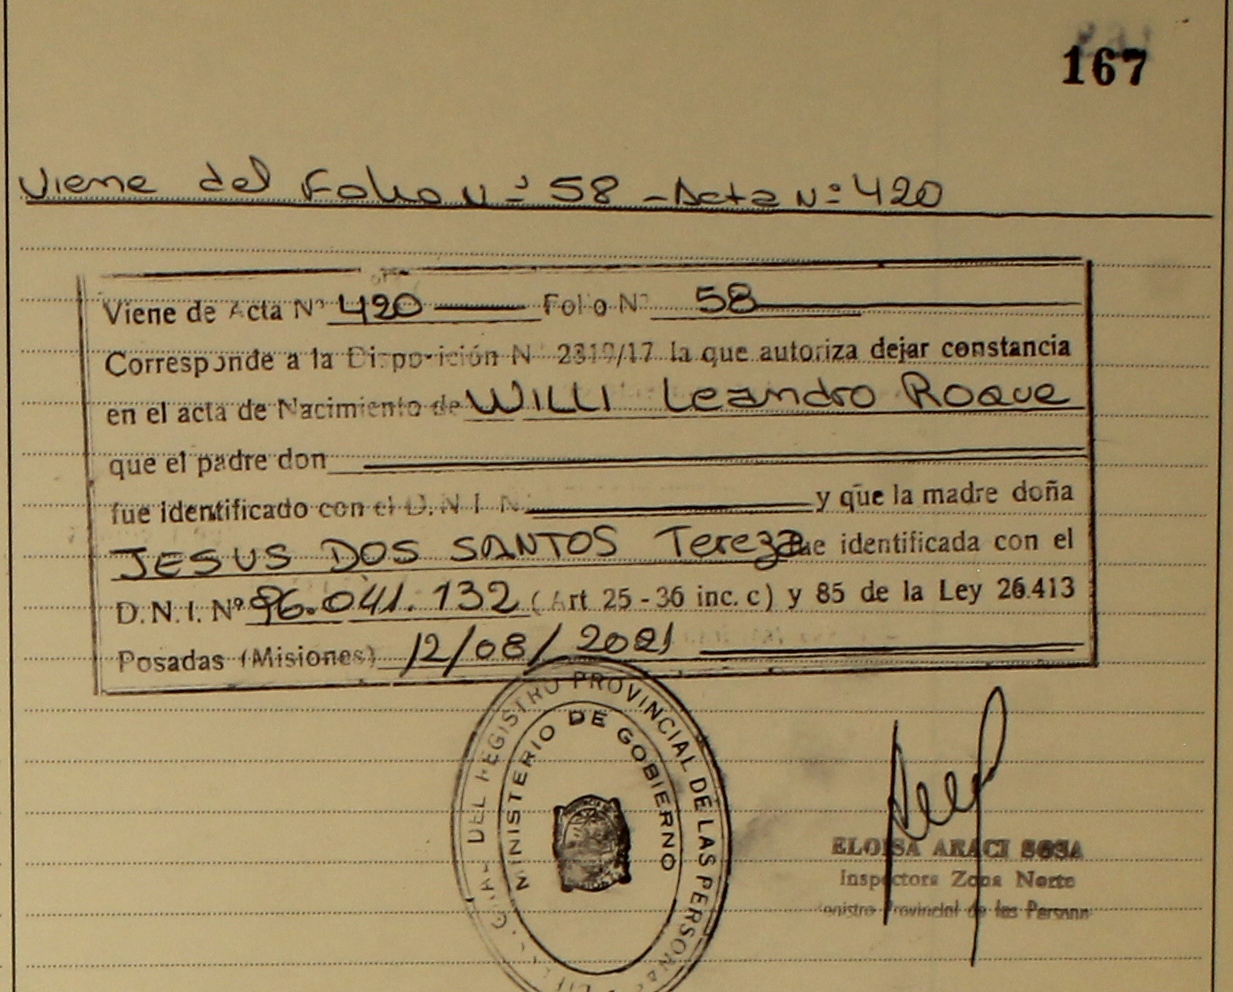 167
Viene del Folio Nº 58 - Acta Nº 420
Viene de Acta Nº 420 Folio Nº 58
Corresponde a la Disposición Nº 2319/17 la que autoriza dejar constancia
en el acta de Nacimiento de WILLI Leandro Roque
que el padre don
fue identificado con el D.N.I. Nº y que la madre doña
JESUS DOS SANTOS Tereza fue identificada con el
D.N.I. Nº 96.041.132 (Art 25 - 36 inc. c) y 85 de la Ley 26.413
Posadas (Misiones) 12/08/2021
DEL REGISTRO PROVINCIAL DE LAS PERSONAS
MINISTERIO DE GOBIERNO
ELOISA ARACI SOSA
Inspectora Zona Norte
Registro Provincial de las Personas